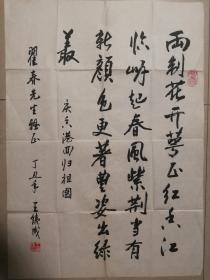 両制花开萼正红香江
临岍起春风紫荆当有
新颜色更著丰姿出绿
丛
庆香港回归祖国
翟春先生雅正
丁丑年 王铁成